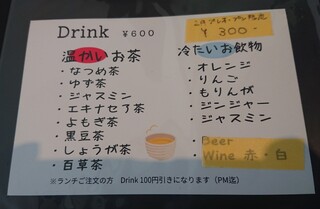 Drink ¥600
¥300-
温かいお茶
・なつめ茶
・ゆず茶
・ジャスミン
・エキナセア茶
・よもぎ茶
・黒豆茶
・しょうが茶
・百草茶
冷たいお飲物
・オレンジ
・りんご
・もりんが
・ジンジャー
・ジャスミン
・Beer
・Wine 赤・白
※ランチご注文の方 Drink 100円引きになります（PM迄）